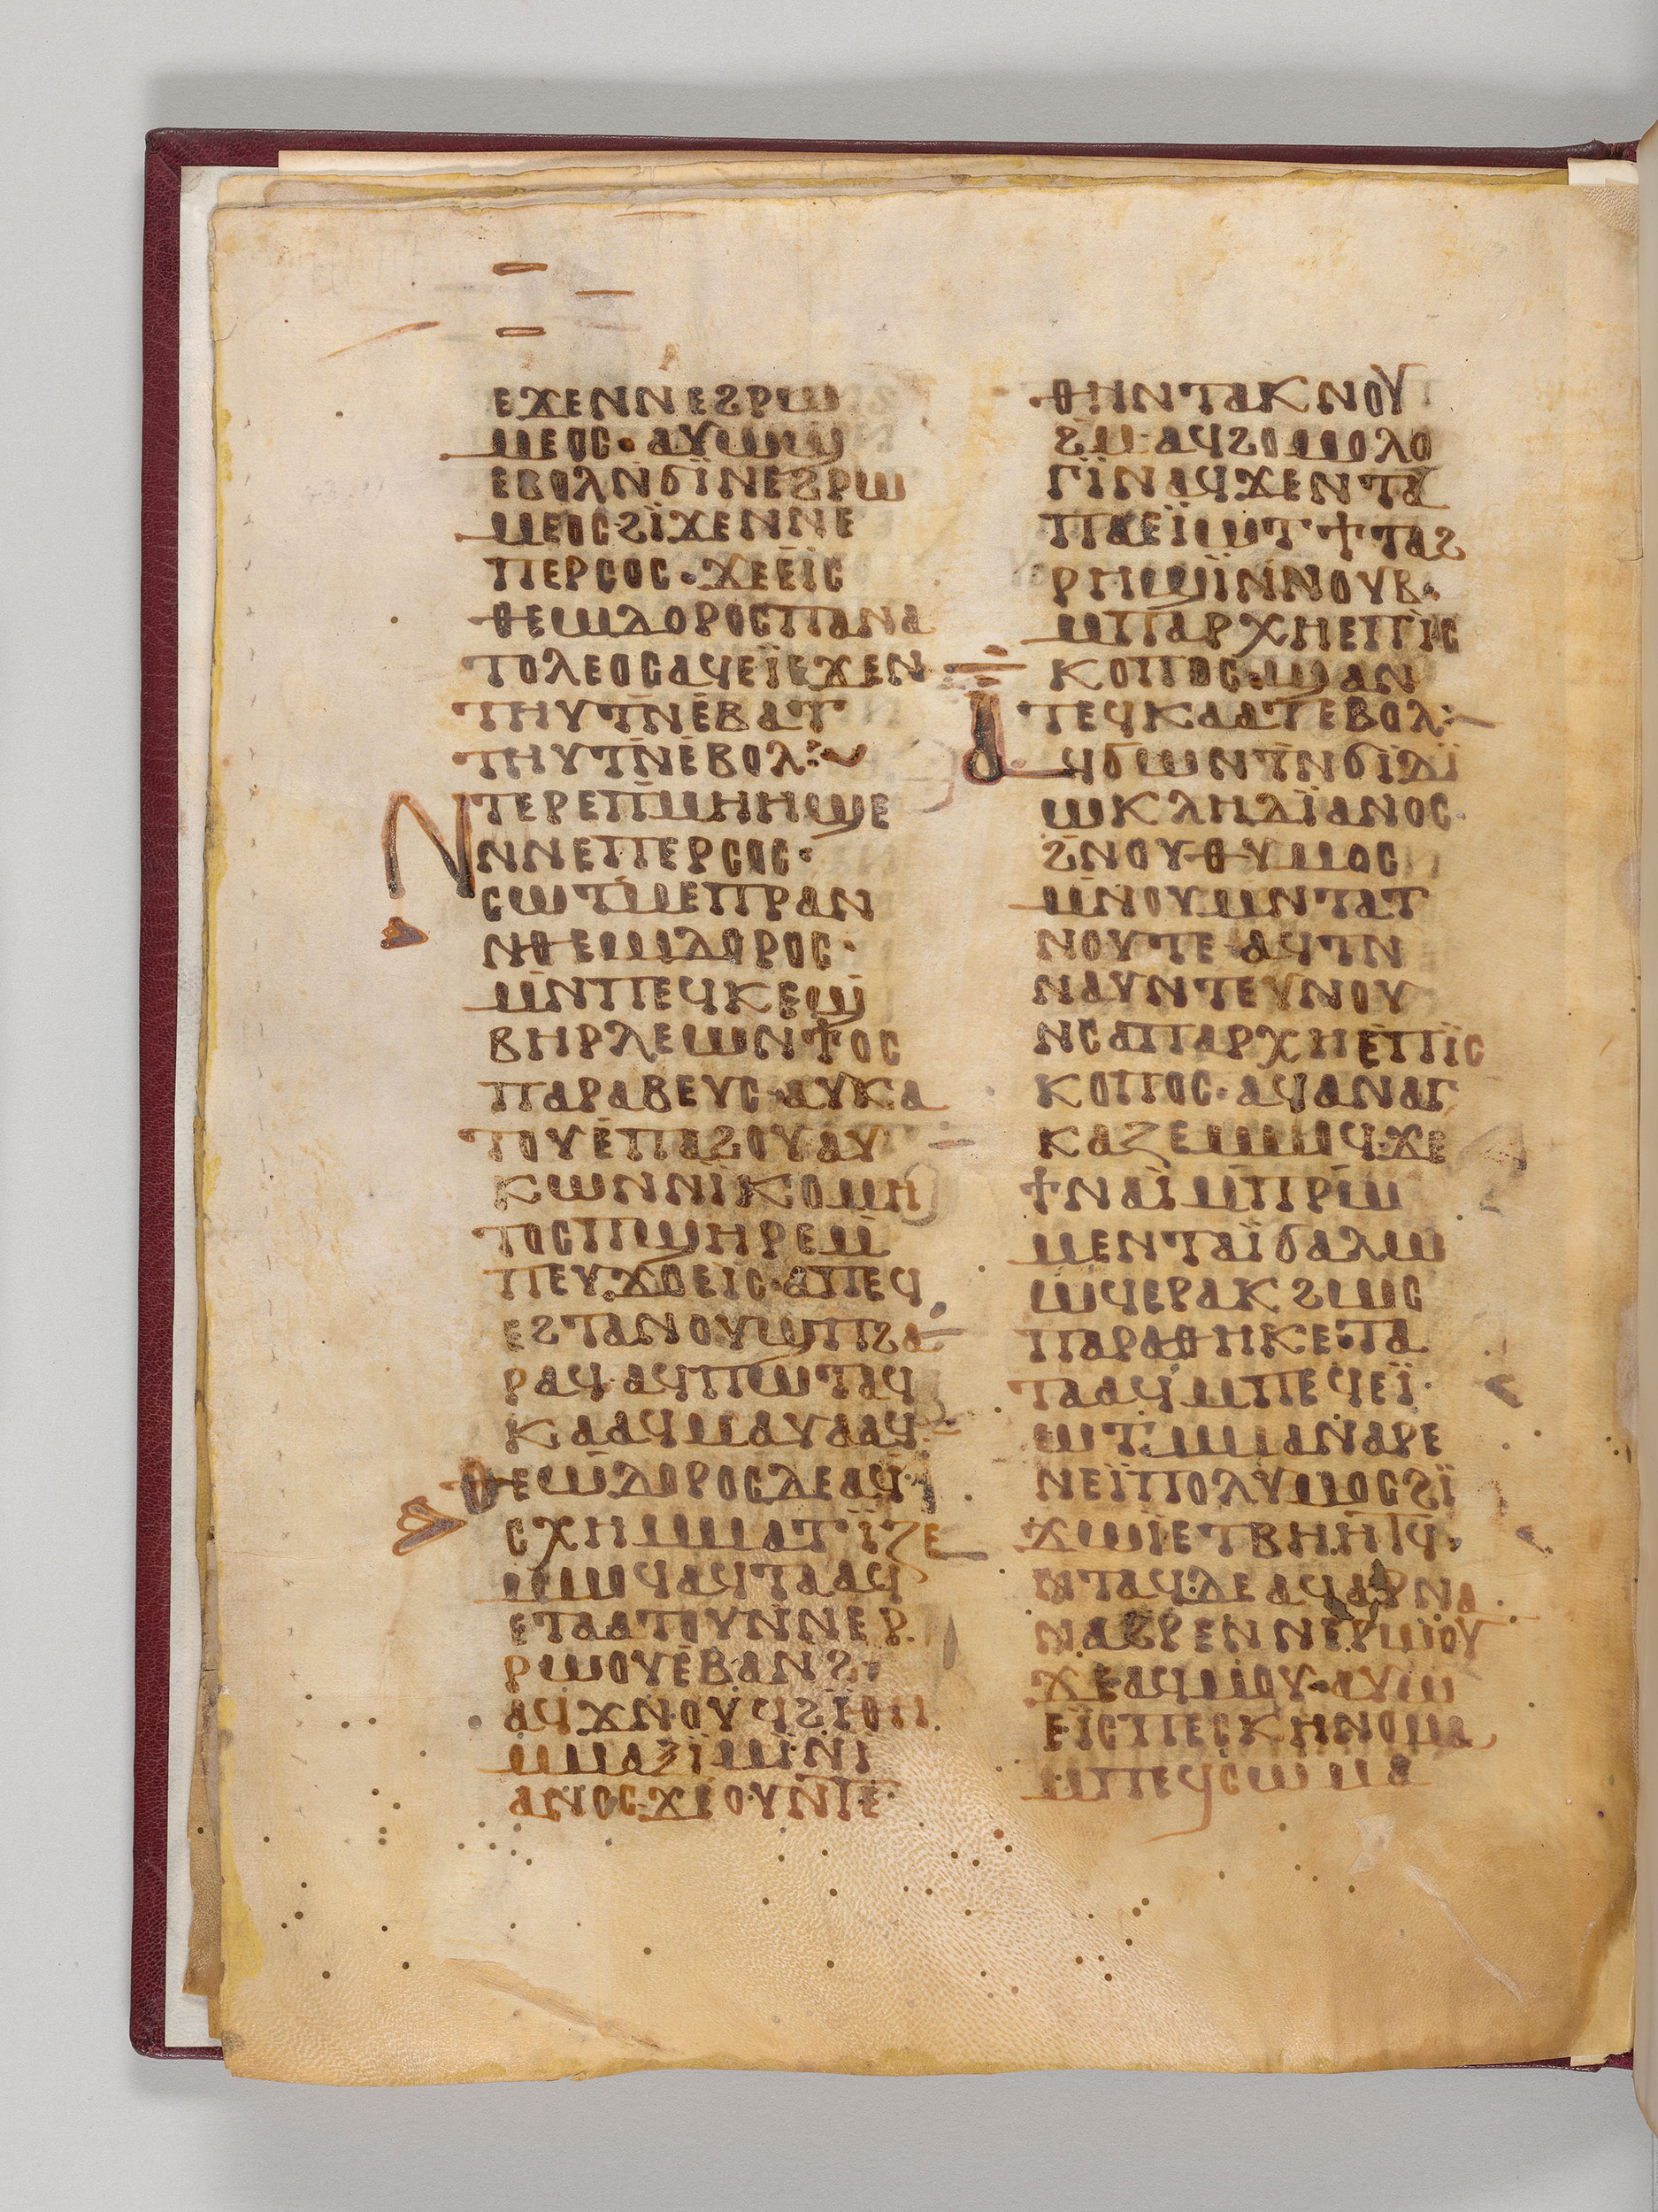 ⲉϫⲉⲛⲛⲉϩⲣⲱ
ⲙⲉⲟⲥ· ⲁⲩⲱϣ
ⲉⲃⲟⲗⲛ̄ϭⲓ̈ⲛⲉϩⲣⲱ
ⲙⲉⲟⲥϩⲓ̈ϫⲉⲛⲛⲉ
ⲡⲉⲣⲥⲟⲥ· ϫⲉⲉⲓⲥ
ⲑⲉⲱⲇⲟⲣⲟⲥⲡⲁⲛⲁ
ⲧⲟⲗⲉⲟⲥⲁϥⲉⲓ̈ⲉϫⲉⲛ
ⲧⲏⲩⲧⲛ̄ⲉ̄ⲃⲁⲧ
ⲧⲏⲩⲧⲛ̄ⲉ̄ⲃⲟⲗ:
ⲛⲧⲉⲣⲉⲡⲙⲏⲏϣⲉ
ⲛⲛⲉⲡⲉⲣⲥⲟⲥ·
ⲥⲱⲧⲙⲉⲡⲣⲁⲛ
ⲛⲑⲉⲱⲇⲟⲣⲟⲥ·
ⲙⲛ̄ⲡⲉϥⲕⲉϣ
ⲃⲏⲣⲗⲉⲱⲛϯⲟⲥ
ⲡⲁⲣⲁⲃⲉⲩⲥ·ⲁⲩⲕⲁ
ⲧⲟⲩⲉ̄ⲡⲁϩⲟⲩⲁⲩ
ⲕⲱⲛⲛⲓ̈ⲕⲟⲙⲏ
ⲧⲟⲥⲡϣⲏⲣⲉⲙ̄
ⲡⲉⲩϫⲟⲉⲓⲥ·ⲁⲡⲉϥ
ⲉϩⲧⲁⲛⲟⲩⲱϣⲡϩⲁ
ⲣⲁϥ·ⲁϥⲡⲱⲧⲁϥ
ⲕⲁⲁϥⲙⲁⲩⲁⲁϥ·
ⲑⲉⲱⲇⲟⲣⲟⲥⲇⲉⲁϥ
ⲥⲭⲏⲙⲙⲁⲧⲓ̈ⲍⲉ
ⲙⲙⲟϥⲁϥⲧⲁⲁϥ
ⲉⲧⲁⲁⲧⲟⲩⲛⲛⲉⲣ
ⲣⲱⲟⲩⲉ̄ⲃⲁⲛϩ·
ⲁϥϫⲛⲟⲩϥϩⲓ̈ⲑⲏ
ⲙⲙⲁⲝⲓⲙⲓⲛⲓ
ⲁⲛⲟⲥ·ϫⲉⲟⲩⲛⲡⲉ
ⲑⲏⲛⲧⲁⲕⲛⲟⲩ
ϩⲙ·ⲁϥϩⲟⲙⲟⲗⲟ
ⲅⲓ̈ⲛⲁϥϫⲉⲛⲧⲁ
ⲡⲁⲉⲓ̈ⲱⲧϯⲧⲁϩ
ⲣⲏϣⲓ̈ⲛⲛⲟⲩⲃ·
ⲙⲡⲁⲣⲭⲏⲉⲡⲓⲥ
ⲕⲟⲡⲟⲥ·ϣⲁⲛ
ⲧⲉϥⲕⲁⲁⲧⲉⲃⲟⲗ:
ⲁϥϭⲱⲛⲧⲛ̄ϭⲓⲇⲓ̈
ⲱⲕⲗⲏⲇⲓ̈ⲁⲛⲟⲥ·
ϩⲛⲟⲩⲑⲩⲙⲟⲥ
ⲙⲛ̄ⲟⲩⲙⲛⲧⲁⲧ
ⲛⲟⲩⲧⲉ·ⲁϥⲧⲛ
ⲛⲁⲩⲛⲧⲉⲩⲛⲟⲩ
ⲛⲥⲁⲡⲁⲣⲭⲏⲉⲡⲓ̈ⲥ
ⲕⲟⲡⲟⲥ·ⲁϥⲁⲛⲁⲅ
ⲕⲁⲍⲉⲙⲙⲟϥ·ϫⲉ
ϯⲛⲁⲓ̈ⲙ̄ⲡⲣⲱ̄
ⲙⲉⲛⲧⲁⲓ̈ϭⲁⲗⲱ
ⲱϥⲉⲣⲁⲕϩⲱⲥ
ⲡⲁⲣⲁⲑⲏⲕⲉ·ⲧⲁ
ⲧⲁⲁϥⲙⲡⲉϥⲉⲓ̈
ⲱⲧ·ⲙⲙⲁⲛⲁⲣⲉ
ⲛⲉⲓ̈ⲡⲟⲗⲩⲙⲟⲥϩⲓ̈
ϫⲱⲓ̈ⲉⲧⲃⲏⲏⲧϥ·
ⲛⲧⲁϥ·ⲇⲉⲁϥⲁⲣⲛⲁ
ⲛⲁϩⲣⲉⲛⲛⲉⲣⲙⲓ̈ⲟⲩ
ϫⲉⲁϥⲙⲟⲩ·ⲁⲩⲱ
ⲉⲓ̈ⲥⲡⲉⲥⲕⲏⲛⲟⲙⲁ
ⲙⲡⲉϥⲥⲱⲙⲁ